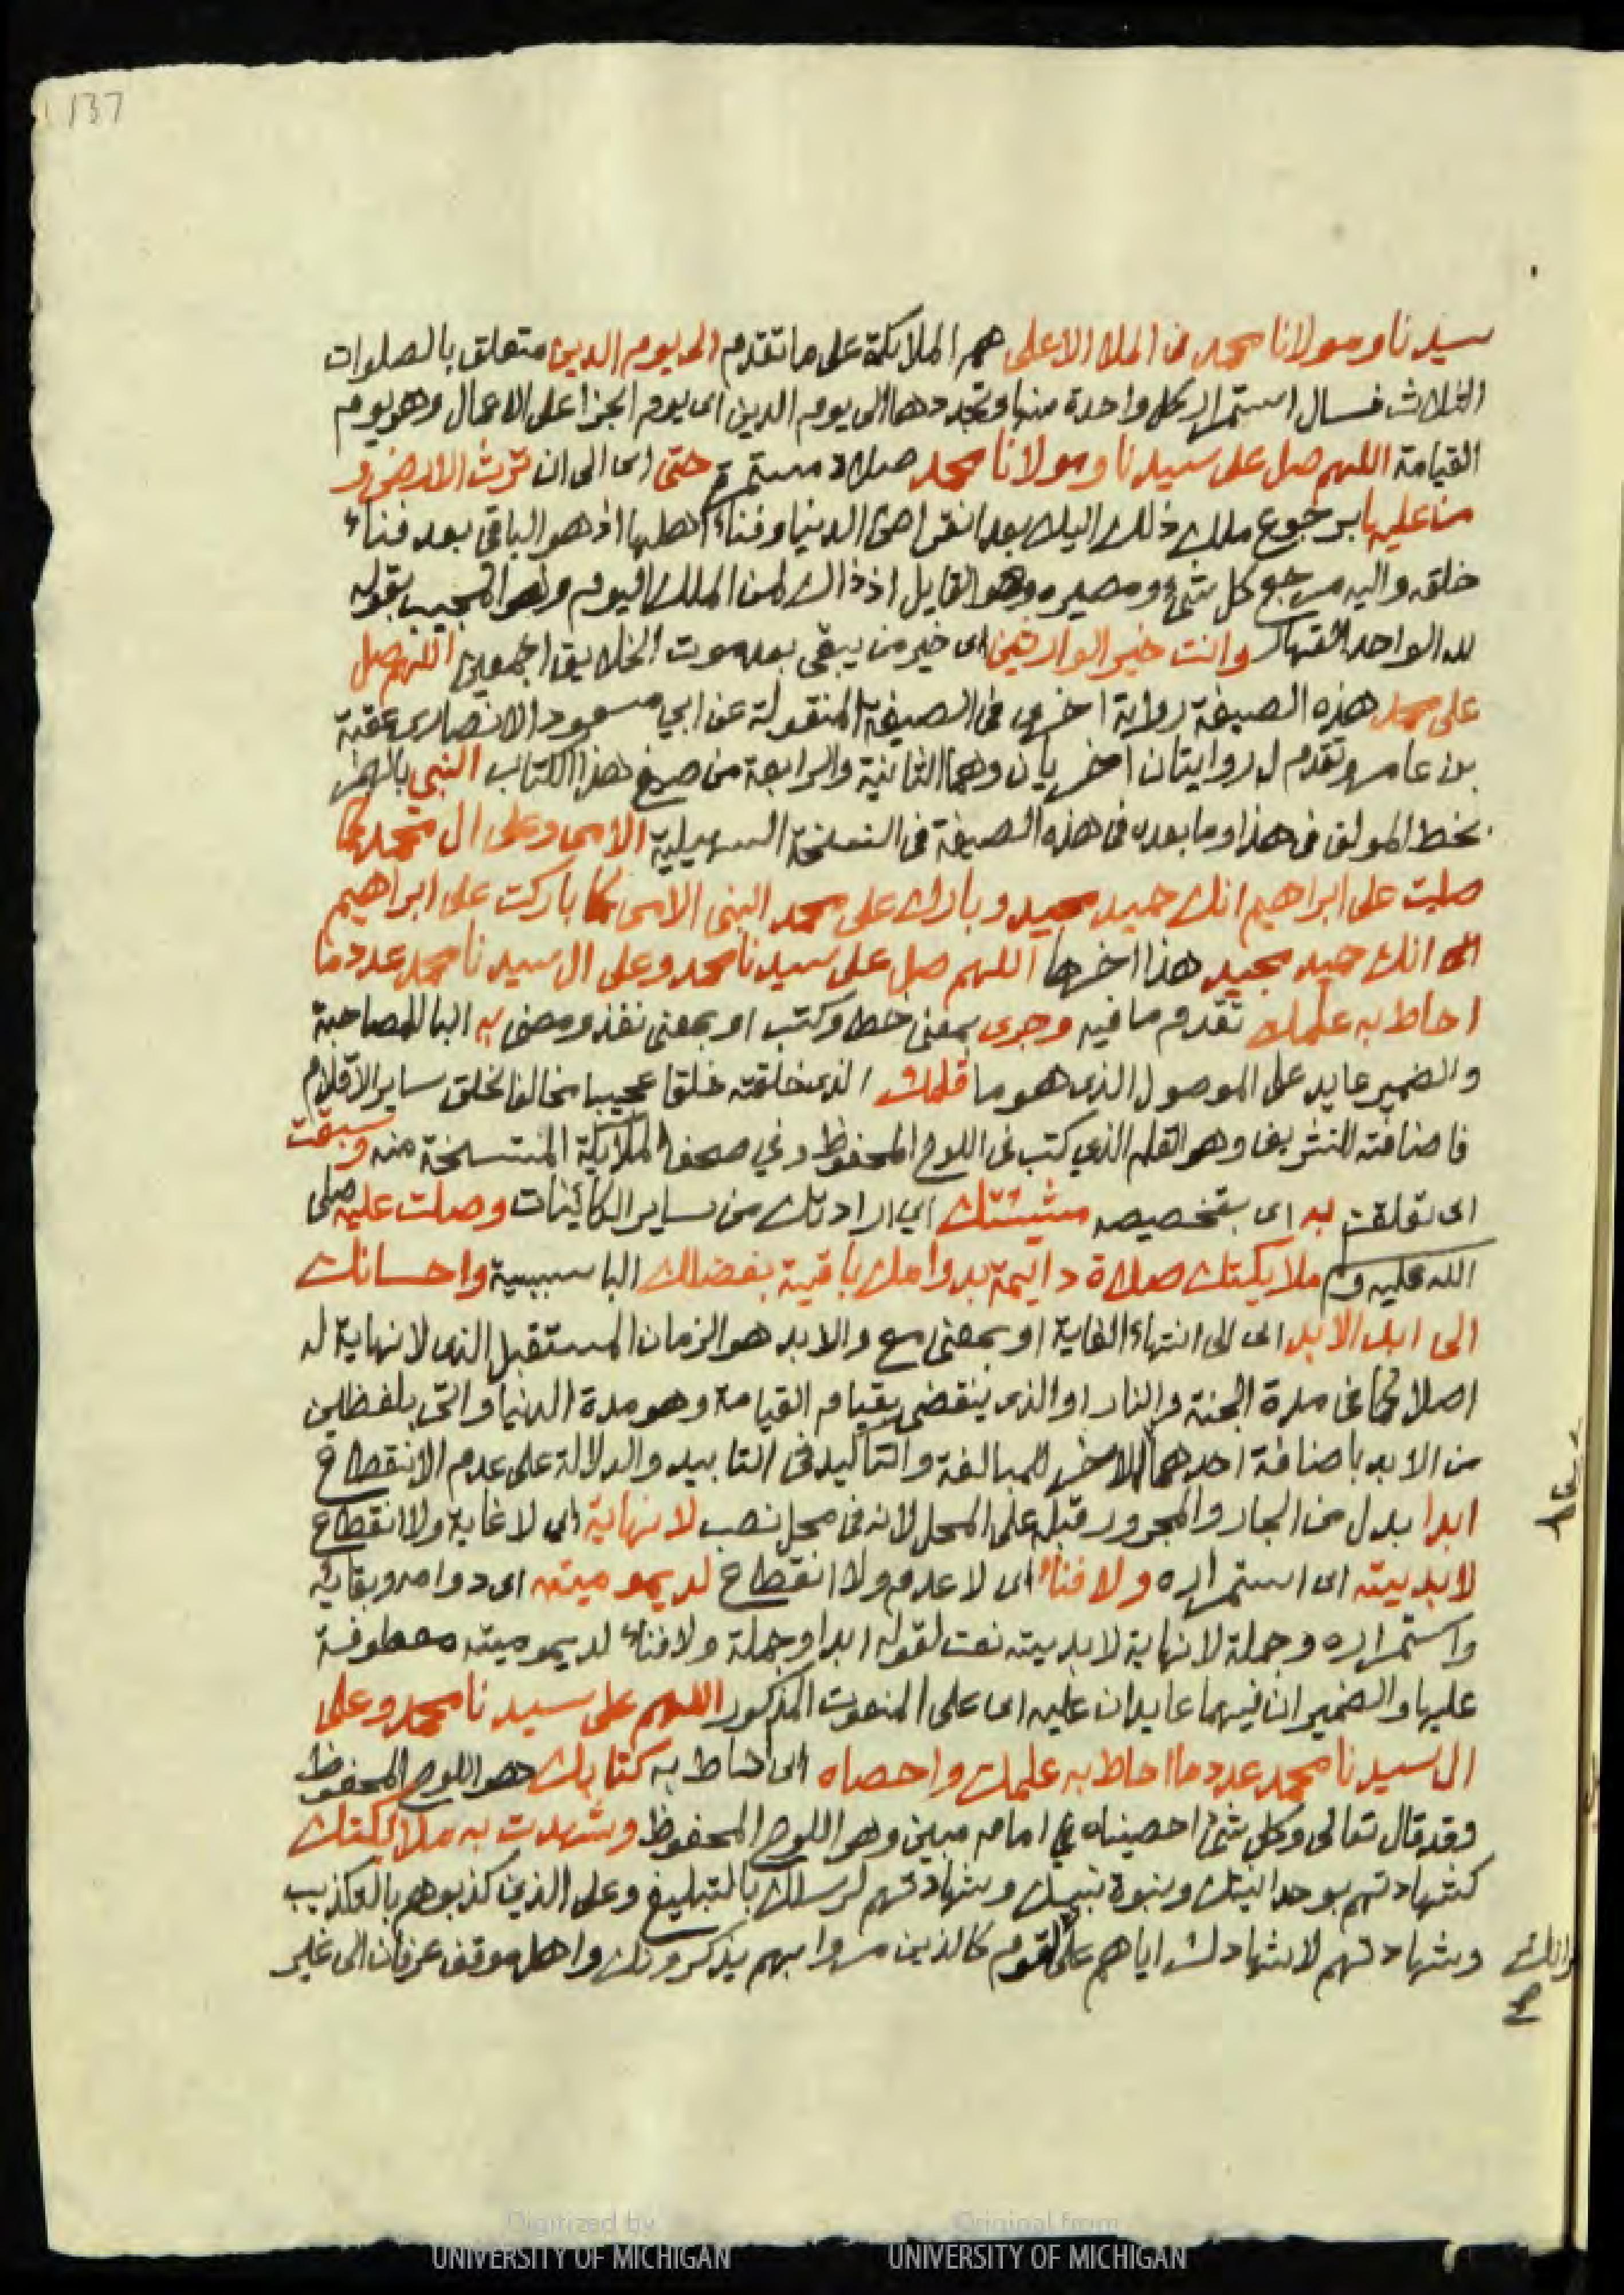 137
سيدنا ومولانا محمد في الملا الاعلى هم الملايكة على ما تقدم الى يوم الدين متعلق بالصلوات
الثلاث فسال استمرار كل واحدة منها وتجددها الى يوم الدين اى يوم الجزا على الاعمال وهو يوم
القيامة اللهم صل على سيدنا ومولانا محمد صلاة مستمرة حتى اى الى ان ترث الارض و
من عليها برجوع ملك ذلك اليك بعد انقراض الدنيا وفناء اهلها اذ هو الباقي بعد فناء
خلقه واليه مرجع كل شئ ومصيره وهو القايل اذ ذاك لمن الملك اليوم وهو المجيب بقوله
لله الواحد القهار وانت خير الوارثين اى خير من يبقى بعد موت الخلايق اجمعين اللهم صل
على محمد هذه الصيغة رواية اخرى في الصيغة المنقولة عن ابي مسعود الانصارى عقبة
بن عامر وتقدم له روايتان اخريان وهما الثانية والرابعة من صيغ هذا الكتاب النبي بالهمز
بخط المولف في هذا وما بعده في هذه الصيغة في النسخة السهيلية الامى وعلى ال محمد كما
صليت على ابراهيم انك حميد مجيد وبارك على محمد النبى الامى كما باركت على ابراهيم
انك حميد مجيد هذا اخرها اللهم صل على سيدنا محمد وعلى ال سيدنا محمد عدد ما
احاط به علمك تقدم ما فيه وجرى بمعنى خط وكتب او بمعنى نفذ ومضى به البا للمصاحبة
والضمير عايد على الموصول الذى هو ما قلمك الذى خلقته خلقا عجيبا مخالفا لخلق ساير الاقلام
فاضافته للتشريف وهو القلم الذي كتب في اللوح المحفوظ وفي صحف الملايكة المنتسخة منه وسبقت
اى تعلقت به اى بتخصيصه مشيئتك اي ارادتك من ساير الكائينات وصلت عليه صلى
الله عليه وسلم ملايكتك صلاة دايمة بدوامك باقية بفضلك البا سببية واحسانك
الى ابد الابد الى لانتهاء الغاية او بمعنى مع والابد هو الزمان المستقبل الذى لا نهاية له
اصلا كما في مدة الجنة والنار او الذى ينقضي بقيام القيامة وهو مدة الدنيا واتى بلفظين
من الابد باضافة احدهما للاخر للمبالغة والتاكيد في التابيد والدلالة على عدم الانقطاع
ابدا بدل من الجار والمجرور قبله على المحل لانه في محل نصب لا نهاية اى لا غاية ولا انقطاع
لابديته اى استمراره ولا فناء اى لا عدم ولا انقطاع لديموميته اى دوامه وبقايه
واستمراره وجملة لا نهاية لابديته نعت لقوله ابدا وجملة ولا فناء لديموميته معطوفة
عليها والضميران فيهما عايدان عليه اى على المنعوت المذكور اللهم على سيدنا محمد وعلى
ال سيدنا محمد عدد ما احاط به علمك واحصاه اى احاط به كتابك هو اللوح المحفوظ
وقد قال تعالى وكل شئ احصيناه في امام مبين وهو اللوح المحفوظ وشهدت به ملائكتك
كشهادتهم بوحدانيتك وبنبوة نبيك وشهادتهم لرسلك بالتبليغ وعلى الذين كذبوهم بالتكذيب
وشهادتهم لاشهادك اياهم على القوم كالذين مروا بهم يذكرونك واهل موقف عرفات الى غير